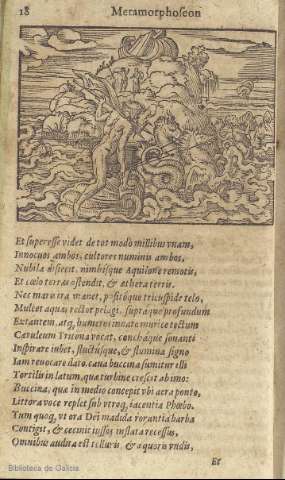 18 Metamorphoseon
Et superesse videt de tot modò millibus vnam,
Innocuos ambos, cultores numinis ambos,
Nubila disiecit, nimbisque Aquilone remotis,
Et cœlo terras ostendit, & æthera terris.
Nec maris ira manet, positóque tricuspide telo,
Mulcet aquas rector pelagi, supraque profundum
Extantem, atq; humeros innato murice tectum
Cæruleum Tritona vocat, conchæque sonanti
Inspirare iubet, fluctusque, & flumina signo
Iam reuocare dato. caua buccina sumitur illi
Tortilis in latum, quæ turbine crescit ab imo:
Buccina, quæ in medio concepit vbi aera ponto,
Littora voce replet sub vtroq; iacentia Phœbo.
Tum quoq; vt ora Dei madida rorantia barba
Contigit, & cecinit iussos inflata recessus,
Omnibus audita est telluris, & æquoris vndis,
Et
Biblioteca de Galicia